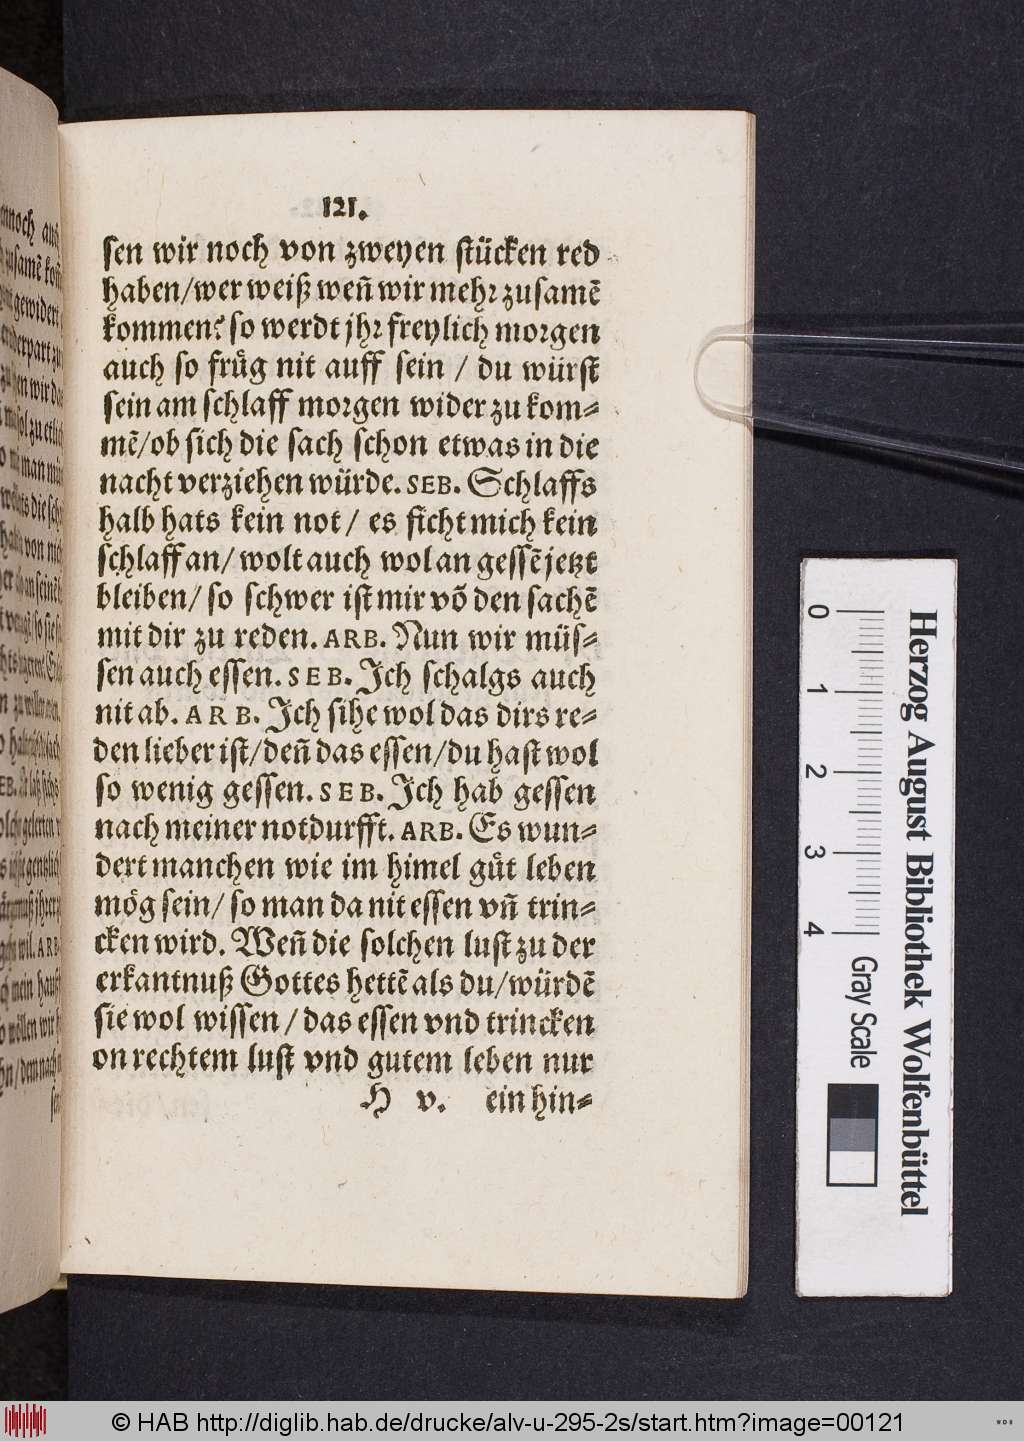 121.
sen wir noch von zweyen stücken red
haben/wer weiß weñ wir mehr zusamẽ
kommen? so werdt jhr freylich morgen
auch so frůg nit auff sein / du würst
sein am schlaff morgen wider zu kom⸗
mẽ/ob sich die sach schon etwas in die
nacht verziehen würde. SEB. Schlaffs
halb hats kein not / es ficht mich kein
schlaff an/ wolt auch wol an gessẽ jetzt
bleiben/ so schwer ist mir võ den sachẽ
mit dir zu reden. ARB. Nun wir müs⸗
sen auch essen. SEB. Jch schalgs auch
nit ab. ARB. Jch sihe wol das dirs re⸗
den lieber ist/deñ das essen/du hast wol
so wenig gessen. SEB. Jch hab gessen
nach meiner notdurfft. ARB. Es wun⸗
dert manchen wie im himel gůt leben
mög sein/ so man da nit essen vñ trin⸗
cken wird. Weñ die solchen lust zu der
erkantnuß Gottes hettẽ als du/würdẽ
sie wol wissen / das essen vnd trincken
on rechtem lust vnd gutem leben nur
H v. ein hin⸗
0 1 2 3 4
Gray Scale
Herzog August Bibliothek Wolfenbüttel
© HAB http://diglib.hab.de/drucke/alv-u-295-2s/start.htm?image=00121